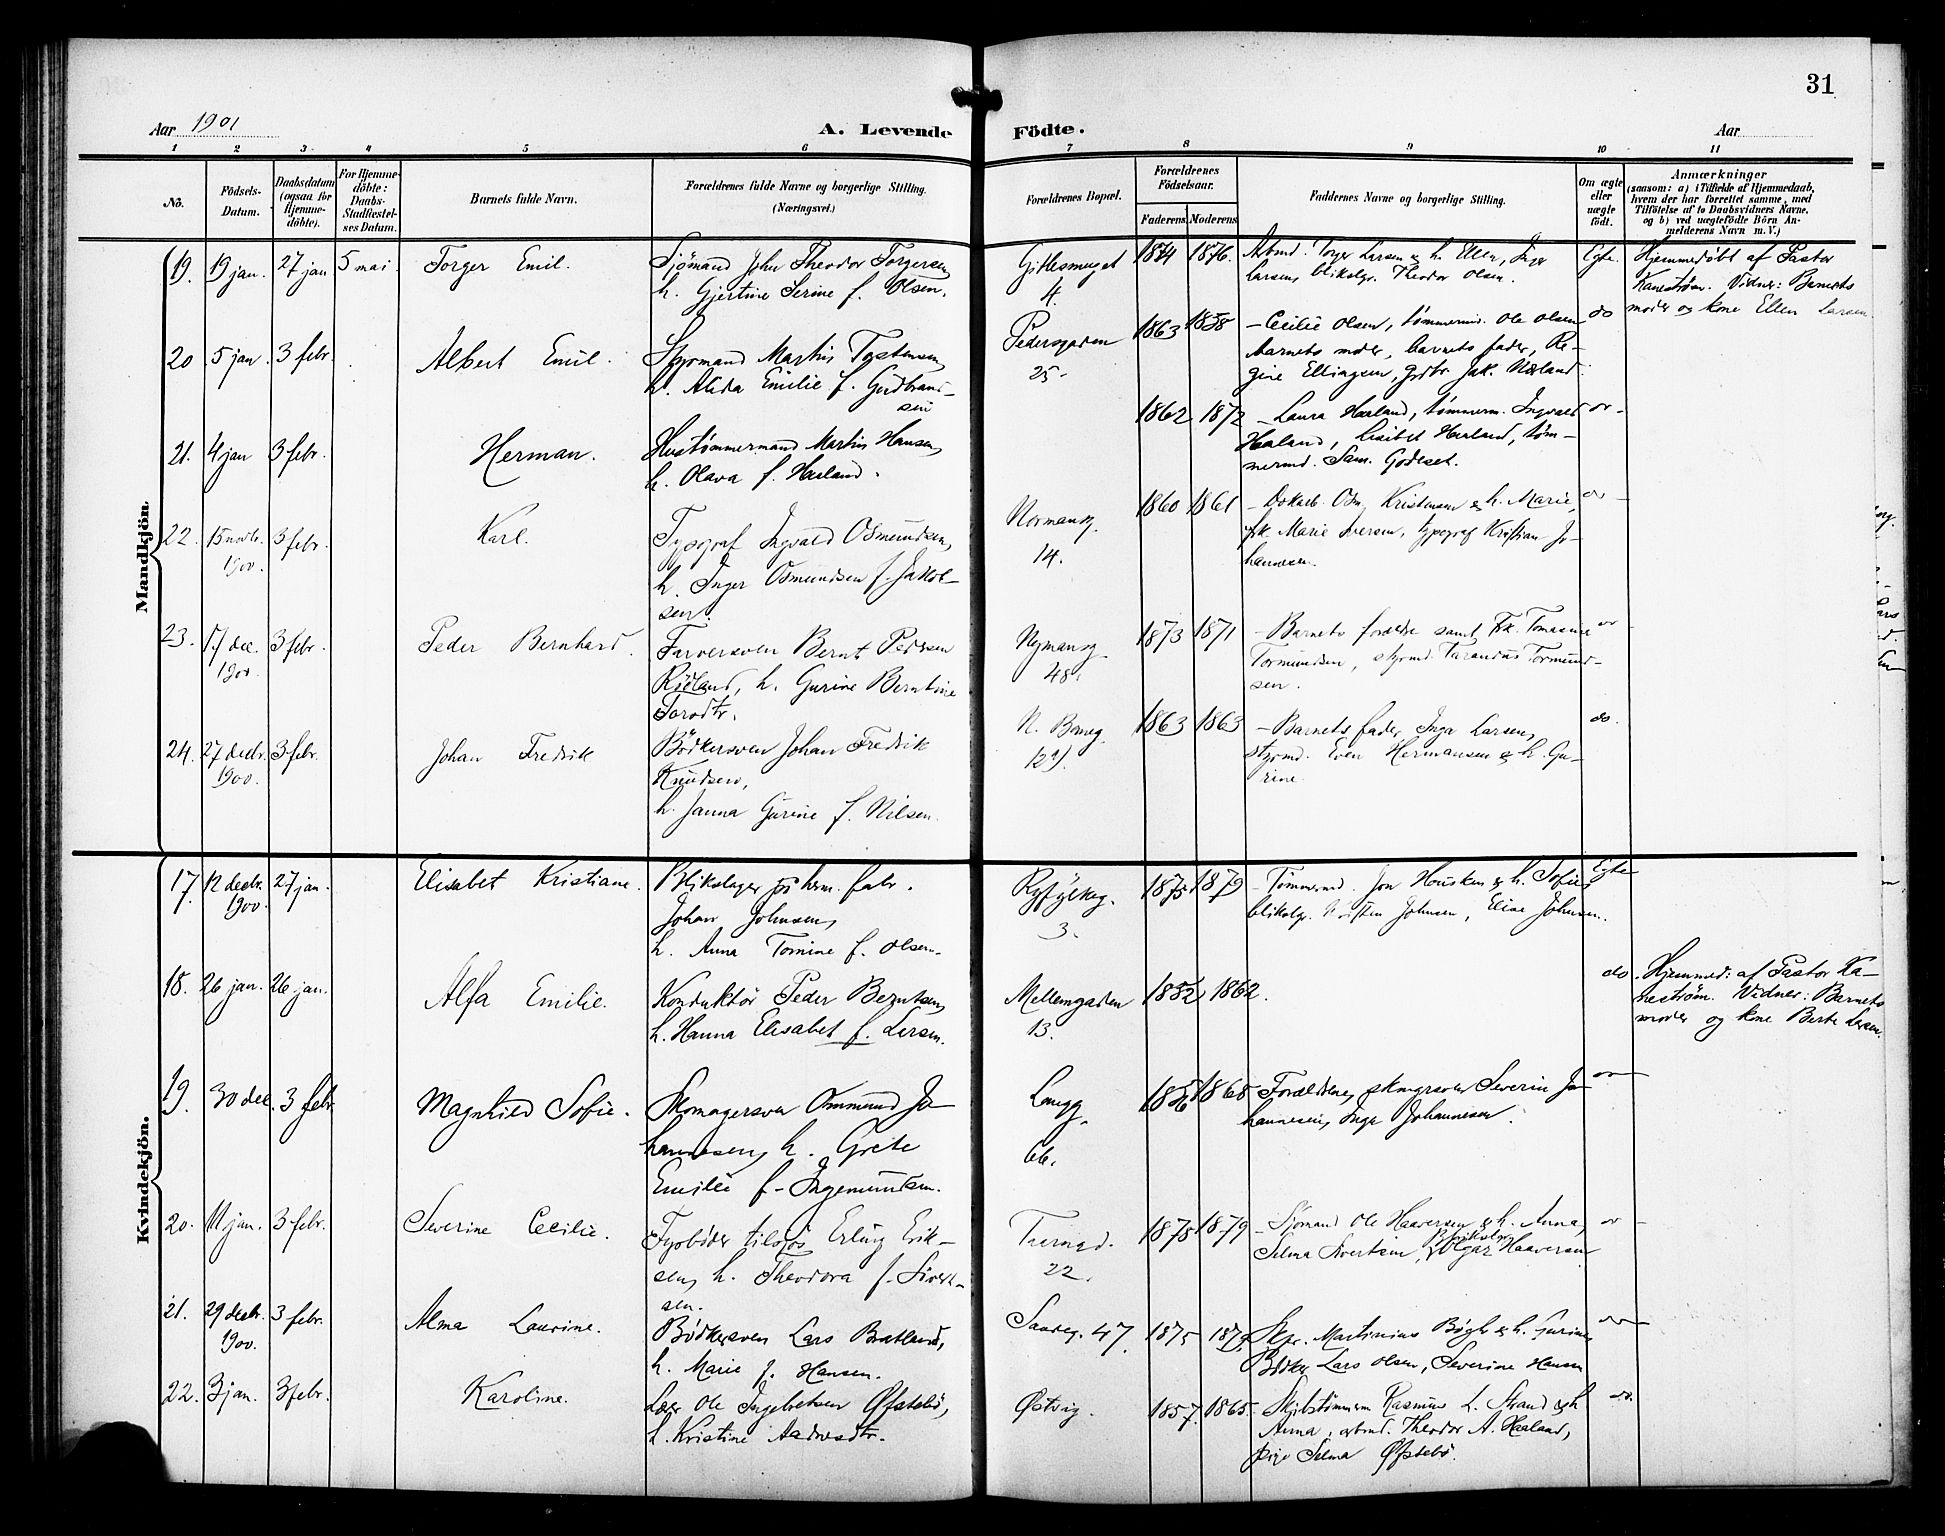 31
Aar 1901
A. Levende
Födte.
Aar
1 2 3 4 5 6 7 8 9 10 11
No.
Födsels-
Datum.
Daabsdatum
(ogsaa for
Hjemme-
döbte).
For Hjemme-
döbte:
Daabs-
Stadfæstel-
ses Datum.
Barnets fulde Navn.
Forældrenes fulde Navne og borgerlige Stilling.
(Næringsvei.)
Forældrenes Bopæl.
Forældrenes
Födselsaar.
Faderens. Moderens.
Faddernes Navne og borgerlige Stilling.
Om ægte
eller
uægte
födt.
Anmærkninger
(saasom: a) i Tilfælde af Hjemmedaab,
hvem der har forrettet samme, med
Tilföielse af to Daabsvidners Navne,
og b) ved uægtefödte Börn An-
melderens Navn m. V.)
Mandkjön.
19. 19 jan. 27 jan 5 mai. Torger Emil.
Sjömand John Theodor Torgersen,
h. Gjertine Serine f. Olsen.
4.
1874 1876.
Arbmd. Torger Larsen & h. Ellen, Inger
Larsen, blikslgr. Theodor Olsen.
Egte.
Hjemmedøbt af Pastor
Kanestrøm. Vidner: Barnets
moder og kone Ellen Larsen
20 5 jan. 3 febr. Albert Emil.
Styrmand Martin
h. Alida Emilie f. Gudbrand-
sen
Pedersgaden
25.
1863 1858
– Cecilie Olsen, tømmermd. Ole Olsen
barnets moder, barnets fader, Re-
gine Ellingsen, Jak. Nærland
do
21. 4 jan 3 febr. Herman.
Hustømmermand Martin Hansen,
h. Olava f. Haaland.
1862 1872
– Laura Haaland, tømmerm. Ingvald
Haaland, Lisibet Haaland, tøm-
mermd. Sam. Godeset.
22. 15 novbr.
1900. 3 febr. Karl.
Typograf Ingvald Osmundsen,
h. Inger Osmundsen f. Jakob-
sen.
Normansg.
14.
1860 1861
Osm. Kristensen & h. Marie,
frk. Marie Iversen, typograf Kristian Jo-
hannesen.
23. 17 dec.
1900 3 febr. Peder Bernhard.
Farversven Bernt Pedersen
h. Gurine Berntine
Nymansg.
48.
1873 1871
– Barnets forældre samt frk. Tomasine
Tormundsen, styrmd. Tarandus Tormund-
sen.
24. 27 decbr.
1900. 3 febr. Johan Fredrik
Bödkersven Johan Fredrik
Knudsen,
h. Janna Gurine f. Nilsen.
1863 1863
– Barnets fader, Inga Larsen,
styrmd. Even Hermansen & h. Gu-
rine.
do.
Kvindekjön.
17. 12 decbr.
1900. 27 jan. Elisabet Kristiane.
Blikslager på herm. fabr.
Johan Johnsen,
h. Anna Tomine f. Olsen.
Ryfylkeg.
3.
1875 1879
– Tømmermd. Jon Housken & h. Sofie,
blikslgr. Johnsen, Elise Johnsen.
Egte
18. 26 jan. 26 jan. Alfa Emilie.
Konduktör Peder Berntsen,
h. Hanna Elisabet f. Larsen.
Mellemgaden
13.
1852 1862.
do
Hjemmed: af Pastor Ka-
nestrøm. Vidner: Barnets
moder og kone Berte Larsen.
19. 30 dec. 3 febr. Magnhild Sofie.
Skomagersven Ommund Jo-
hannesen, h. Grete
Emilie f. Ingemundsen.
Langg.
66.
1868
Forældrene, skmgrsven Severin Jo-
hannesen, Inga Johannesen.
20. 11 jan. 3 febr. Severine Cecilie.
Fyrbøder tilsjøs Erling Erik-
sen, h. Theodora f. Sivert-
sen.
22.
1878 1879
– Sjömand Ole Haaversen & h. Anna,
Selma Sivertsen, Blikslgr. Olgar Haaversen
21. 29 decbr.
1900. 3 febr. Alma Laurine.
Bödkersven Lars Bratland,
h. Marie f. Hansen.
47.
1875
Skpr. Martinius & h. Gurine,
Bødker Lars Olsen, Severine Hansen
22. 3 jan. 3 febr. Karoline.
Ole Ingebretsen Øfstebö,
h. Kristine
Østvig.
1857. 1865.
Skibstömmerm Rasmus L. Strand & h
Anna, arbmd. Theodor A. Haaland,
pige Selma Øfstebö.
do.